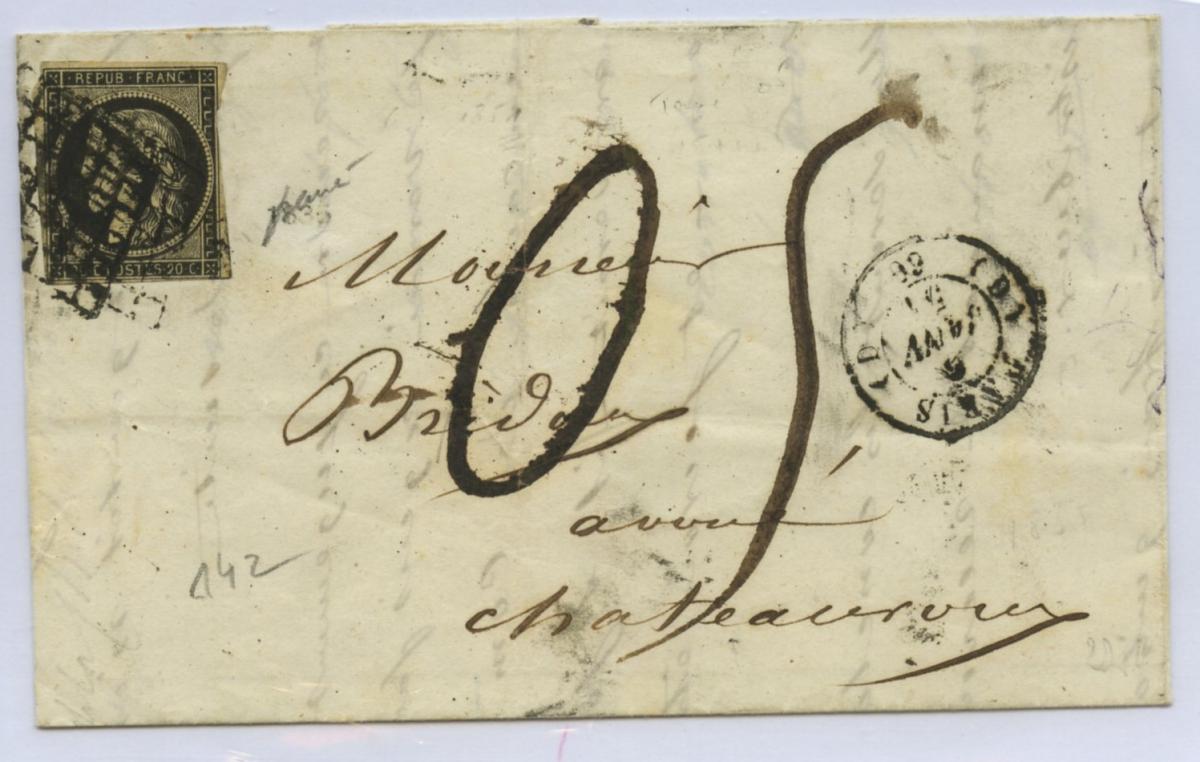 REPUB FRANC
POSTES 20 C
Monsieur
Bridoux
avoué
chateauroux
05
PARIS
9
JANV
51
(60)
142